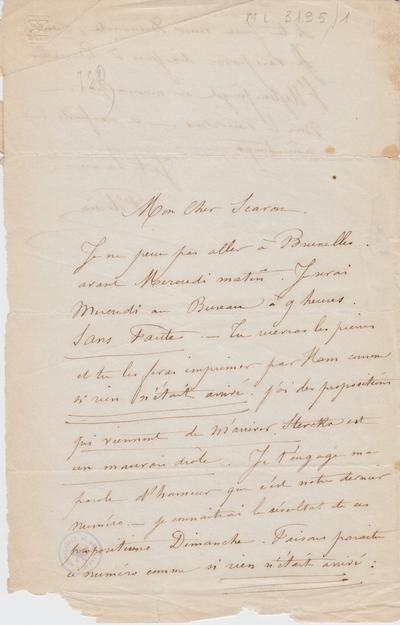 ML 3195/1
Mon Cher Scaron.
Je ne peux pas aller à Bruxelles.
avant Mercredi matin. J'irai
Mercredi au Bureau à 9 heures.
Sans Faute. — Tu verras les pierres
et tu les feras imprimer par Ham comme
si rien n'était arrivé. j'ai des propositions
qui viennent de m'arriver Sterckx est
un mauvais drole. Je t'engage ma
parole d'honneur que c'est notre dernier
numéro — je connaitrai le résultat de ces
propositions Dimanche. Faisons paraitre
ce numéro comme si rien n'était arrivé :